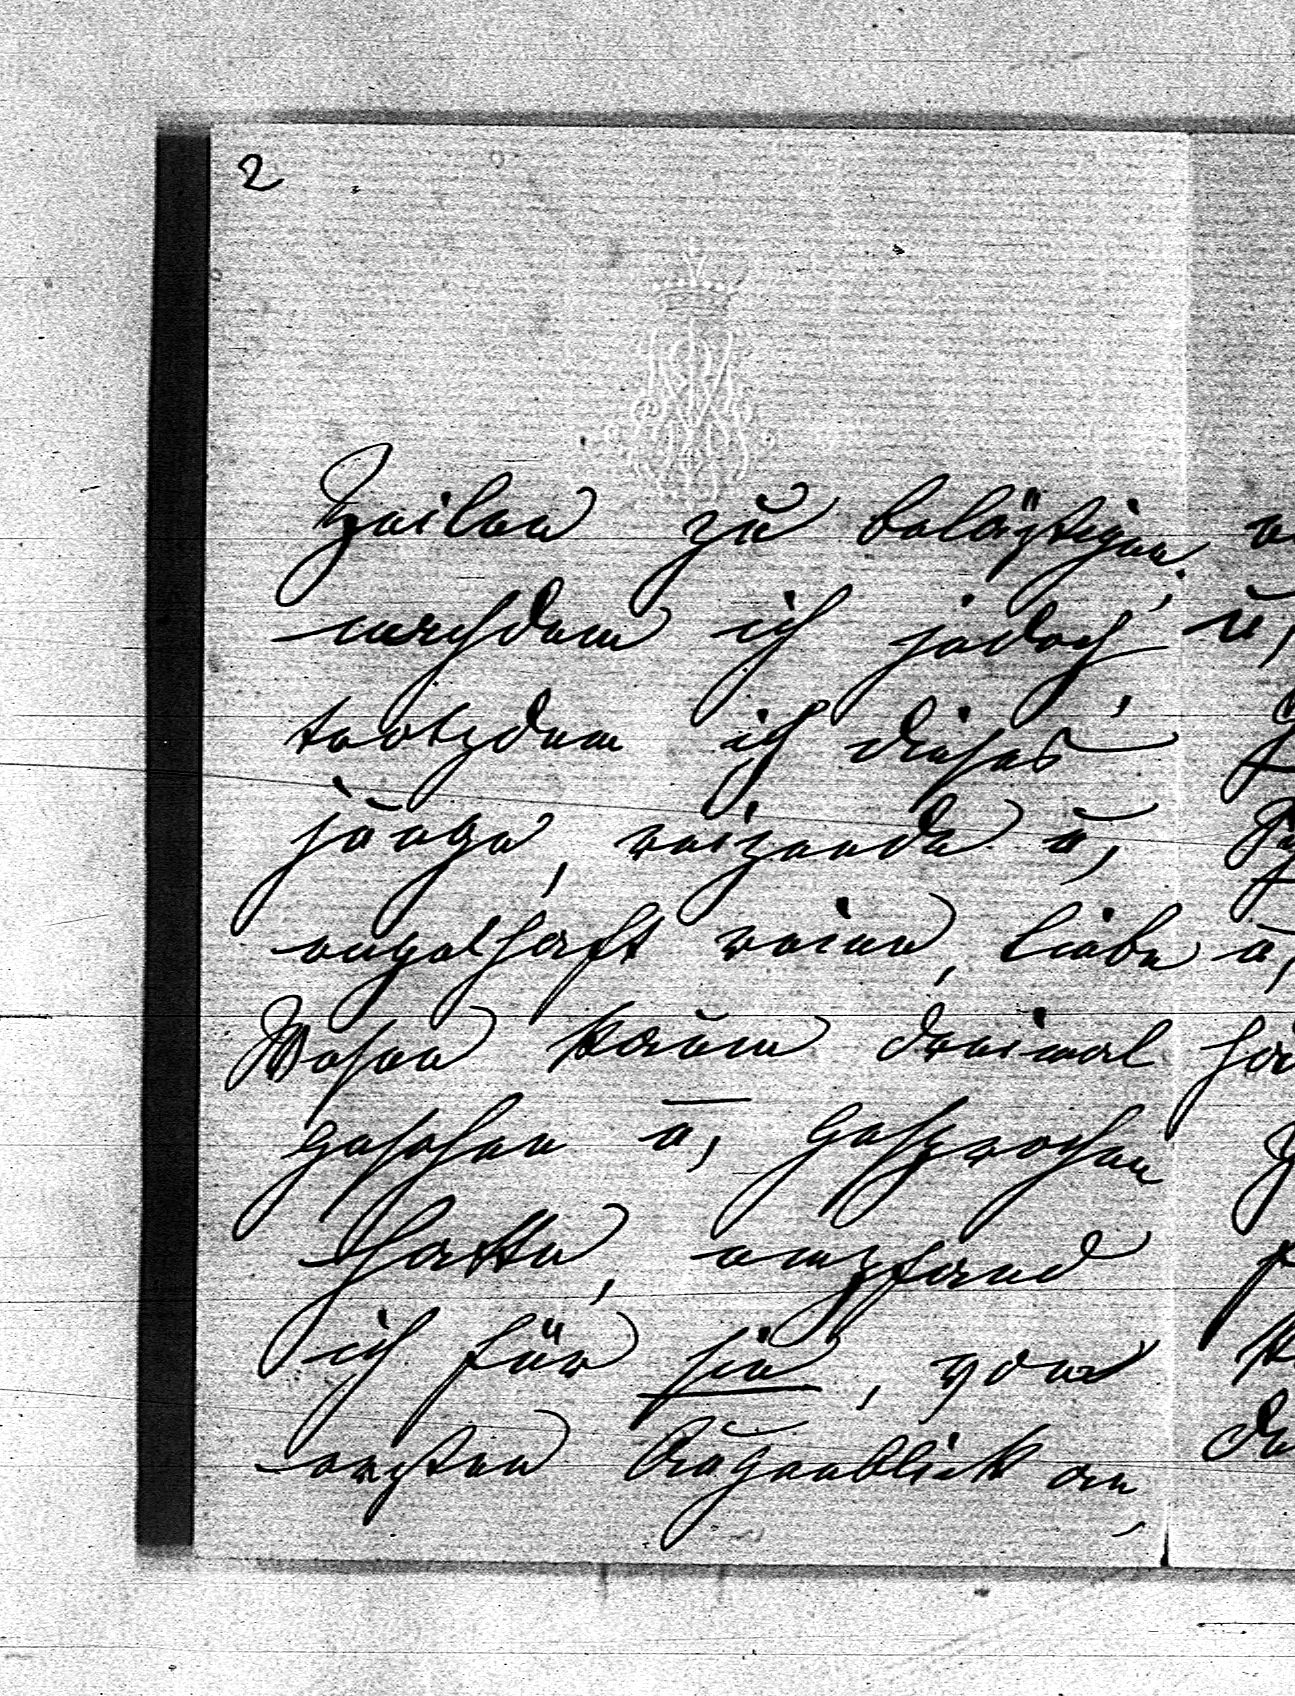 2
Zeilen zu belästigen.
nachdem ich jedoch,
trotzdem ich dieses
junge, reizende u,
engelhaft reine, liebe
Wesen kaum dreimal
gesehen u, gesprochen
hatte, empfand
ich für sie, vom
ersten Augenblick an,